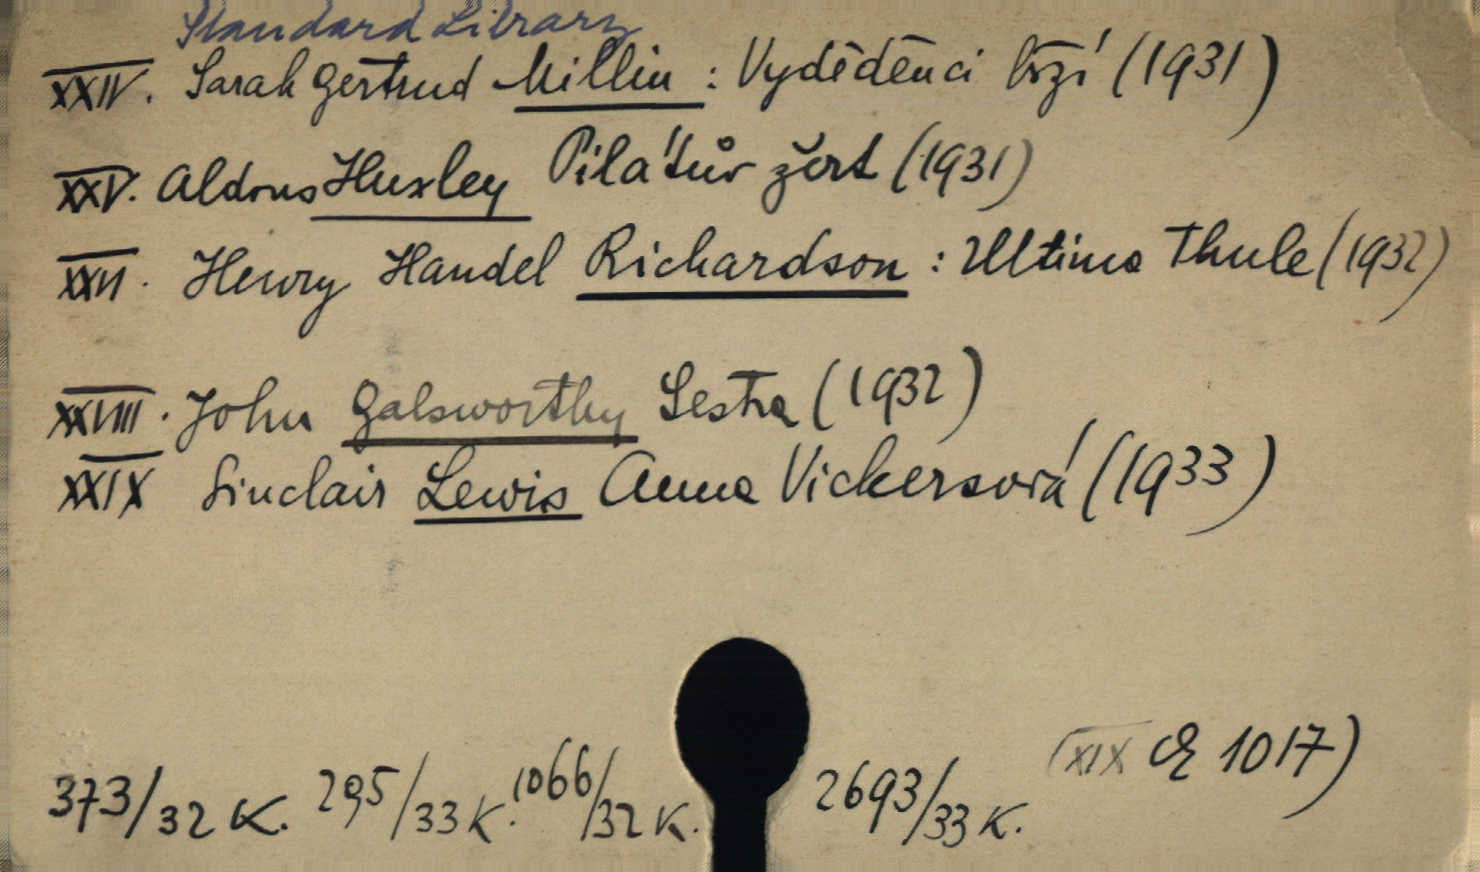 Standard Library
XXIV. Sarah Gertrud Millin : Vyděděnci boží (1931)
XXV. Aldous Huxley Pilátův žert (1931)
XXVI. Henry Handel Richardson : Ultima Thule (1932)
XXVIII. John Galsworthy Sestra (1932)
XXIX Sinclair Lewis Anna Vickersová (1933)
373/32 K. 295/33 K. 1066/32 K. 2693/33 K. (XIX 1017)